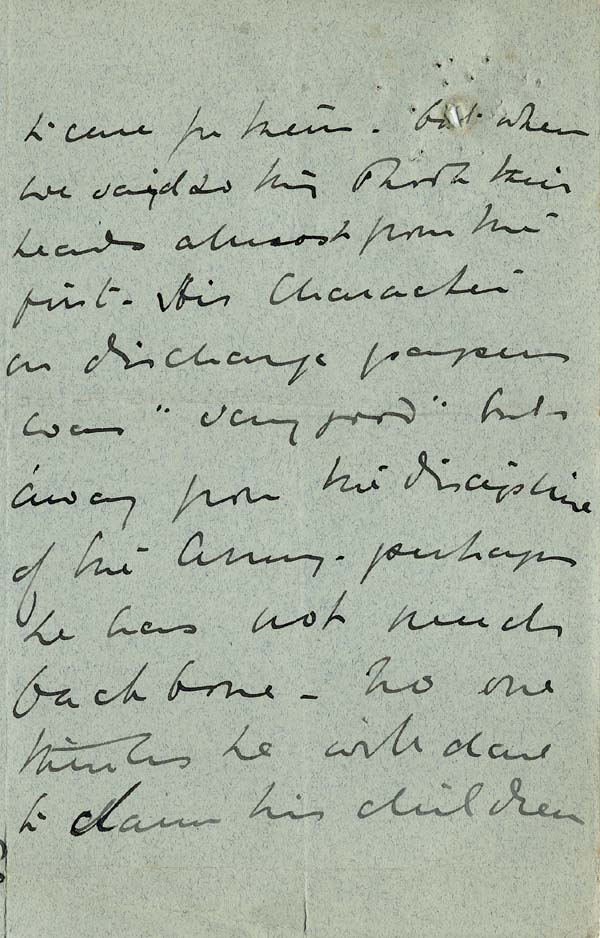 to care for them. but when
we said so they shook their
heads almost from the
first. His Character
on discharge papers
was "very good" but
away from the discipline
of the Army. perhaps
he has not much
backbone - no one
thinks he will dare
to claim his children